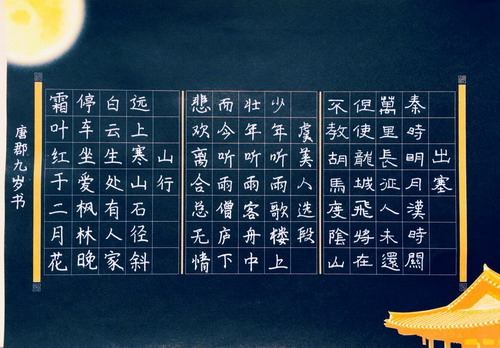 出塞
秦時明月漢時關
萬里長征人未還
但使龍城飛將在
不教胡馬度陰山
虞美人选段
少年听雨歌楼上
壮年听雨客舟中
而今听雨僧庐下
悲欢离合总无情
山行
远上寒山石径斜
白云生处有人家
停车坐爱枫林晚
霜叶红于二月花
唐郡九岁书